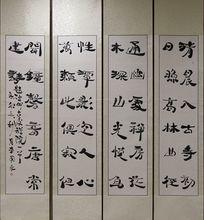 清晨入古寺初
日照高林曲徑
通幽處禪房花
木深山光悅鳥
性潭影空人心
萬籟此俱寂惟
聞鐘磬音唐常
建